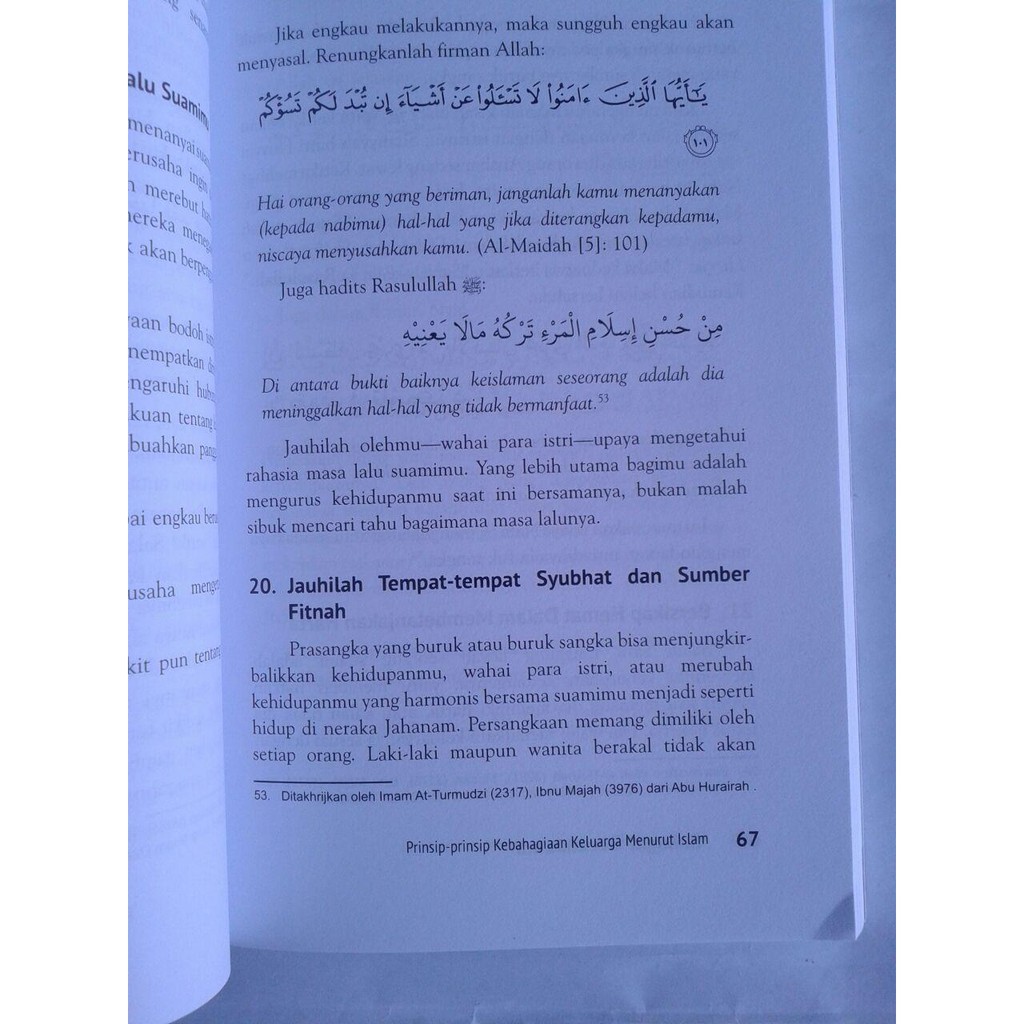 alu Suamimu
menanyai
erusaha ingin
merebut
mereka
akan
bodoh
nempatkan
ngaruhi
kuan tentang
buahkan
ai engkau
usaha
kit pun
Jika engkau melakukannya, maka sungguh engkau akan
menyasal. Renungkanlah firman Allah:
يَـٰٓأَيُّهَا ٱلَّذِينَ ءَامَنُوا۟ لَا تَسْـَٔلُوا۟ عَنْ أَشْيَآءَ إِن تُبْدَ لَكُمْ تَسُؤْكُمْ
١٠١
Hai orang-orang yang beriman, janganlah kamu menanyakan
(kepada nabimu) hal-hal yang jika diterangkan kepadamu,
niscaya menyusahkan kamu. (Al-Maidah [5]: 101)
Juga hadits Rasulullah ﷺ:
مِنْ حُسْنِ إِسْلَامِ الْمَرْءِ تَرْكُهُ مَالَا يَعْنِيْهِ
Di antara bukti baiknya keislaman seseorang adalah dia
meninggalkan hal-hal yang tidak bermanfaat.53
Jauhilah olehmu—wahai para istri—upaya mengetahui
rahasia masa lalu suamimu. Yang lebih utama bagimu adalah
mengurus kehidupanmu saat ini bersamanya, bukan malah
sibuk mencari tahu bagaimana masa lalunya.
20. Jauhilah Tempat-tempat Syubhat dan Sumber
Fitnah
Prasangka yang buruk atau buruk sangka bisa menjungkir-
balikkan kehidupanmu, wahai para istri, atau merubah
kehidupanmu yang harmonis bersama suamimu menjadi seperti
hidup di neraka Jahanam. Persangkaan memang dimiliki oleh
setiap orang. Laki-laki maupun wanita berakal tidak akan
53. Ditakhrijkan oleh Imam At-Turmudzi (2317), Ibnu Majah (3976) dari Abu Hurairah .
Prinsip-prinsip Kebahagiaan Keluarga Menurut Islam 67